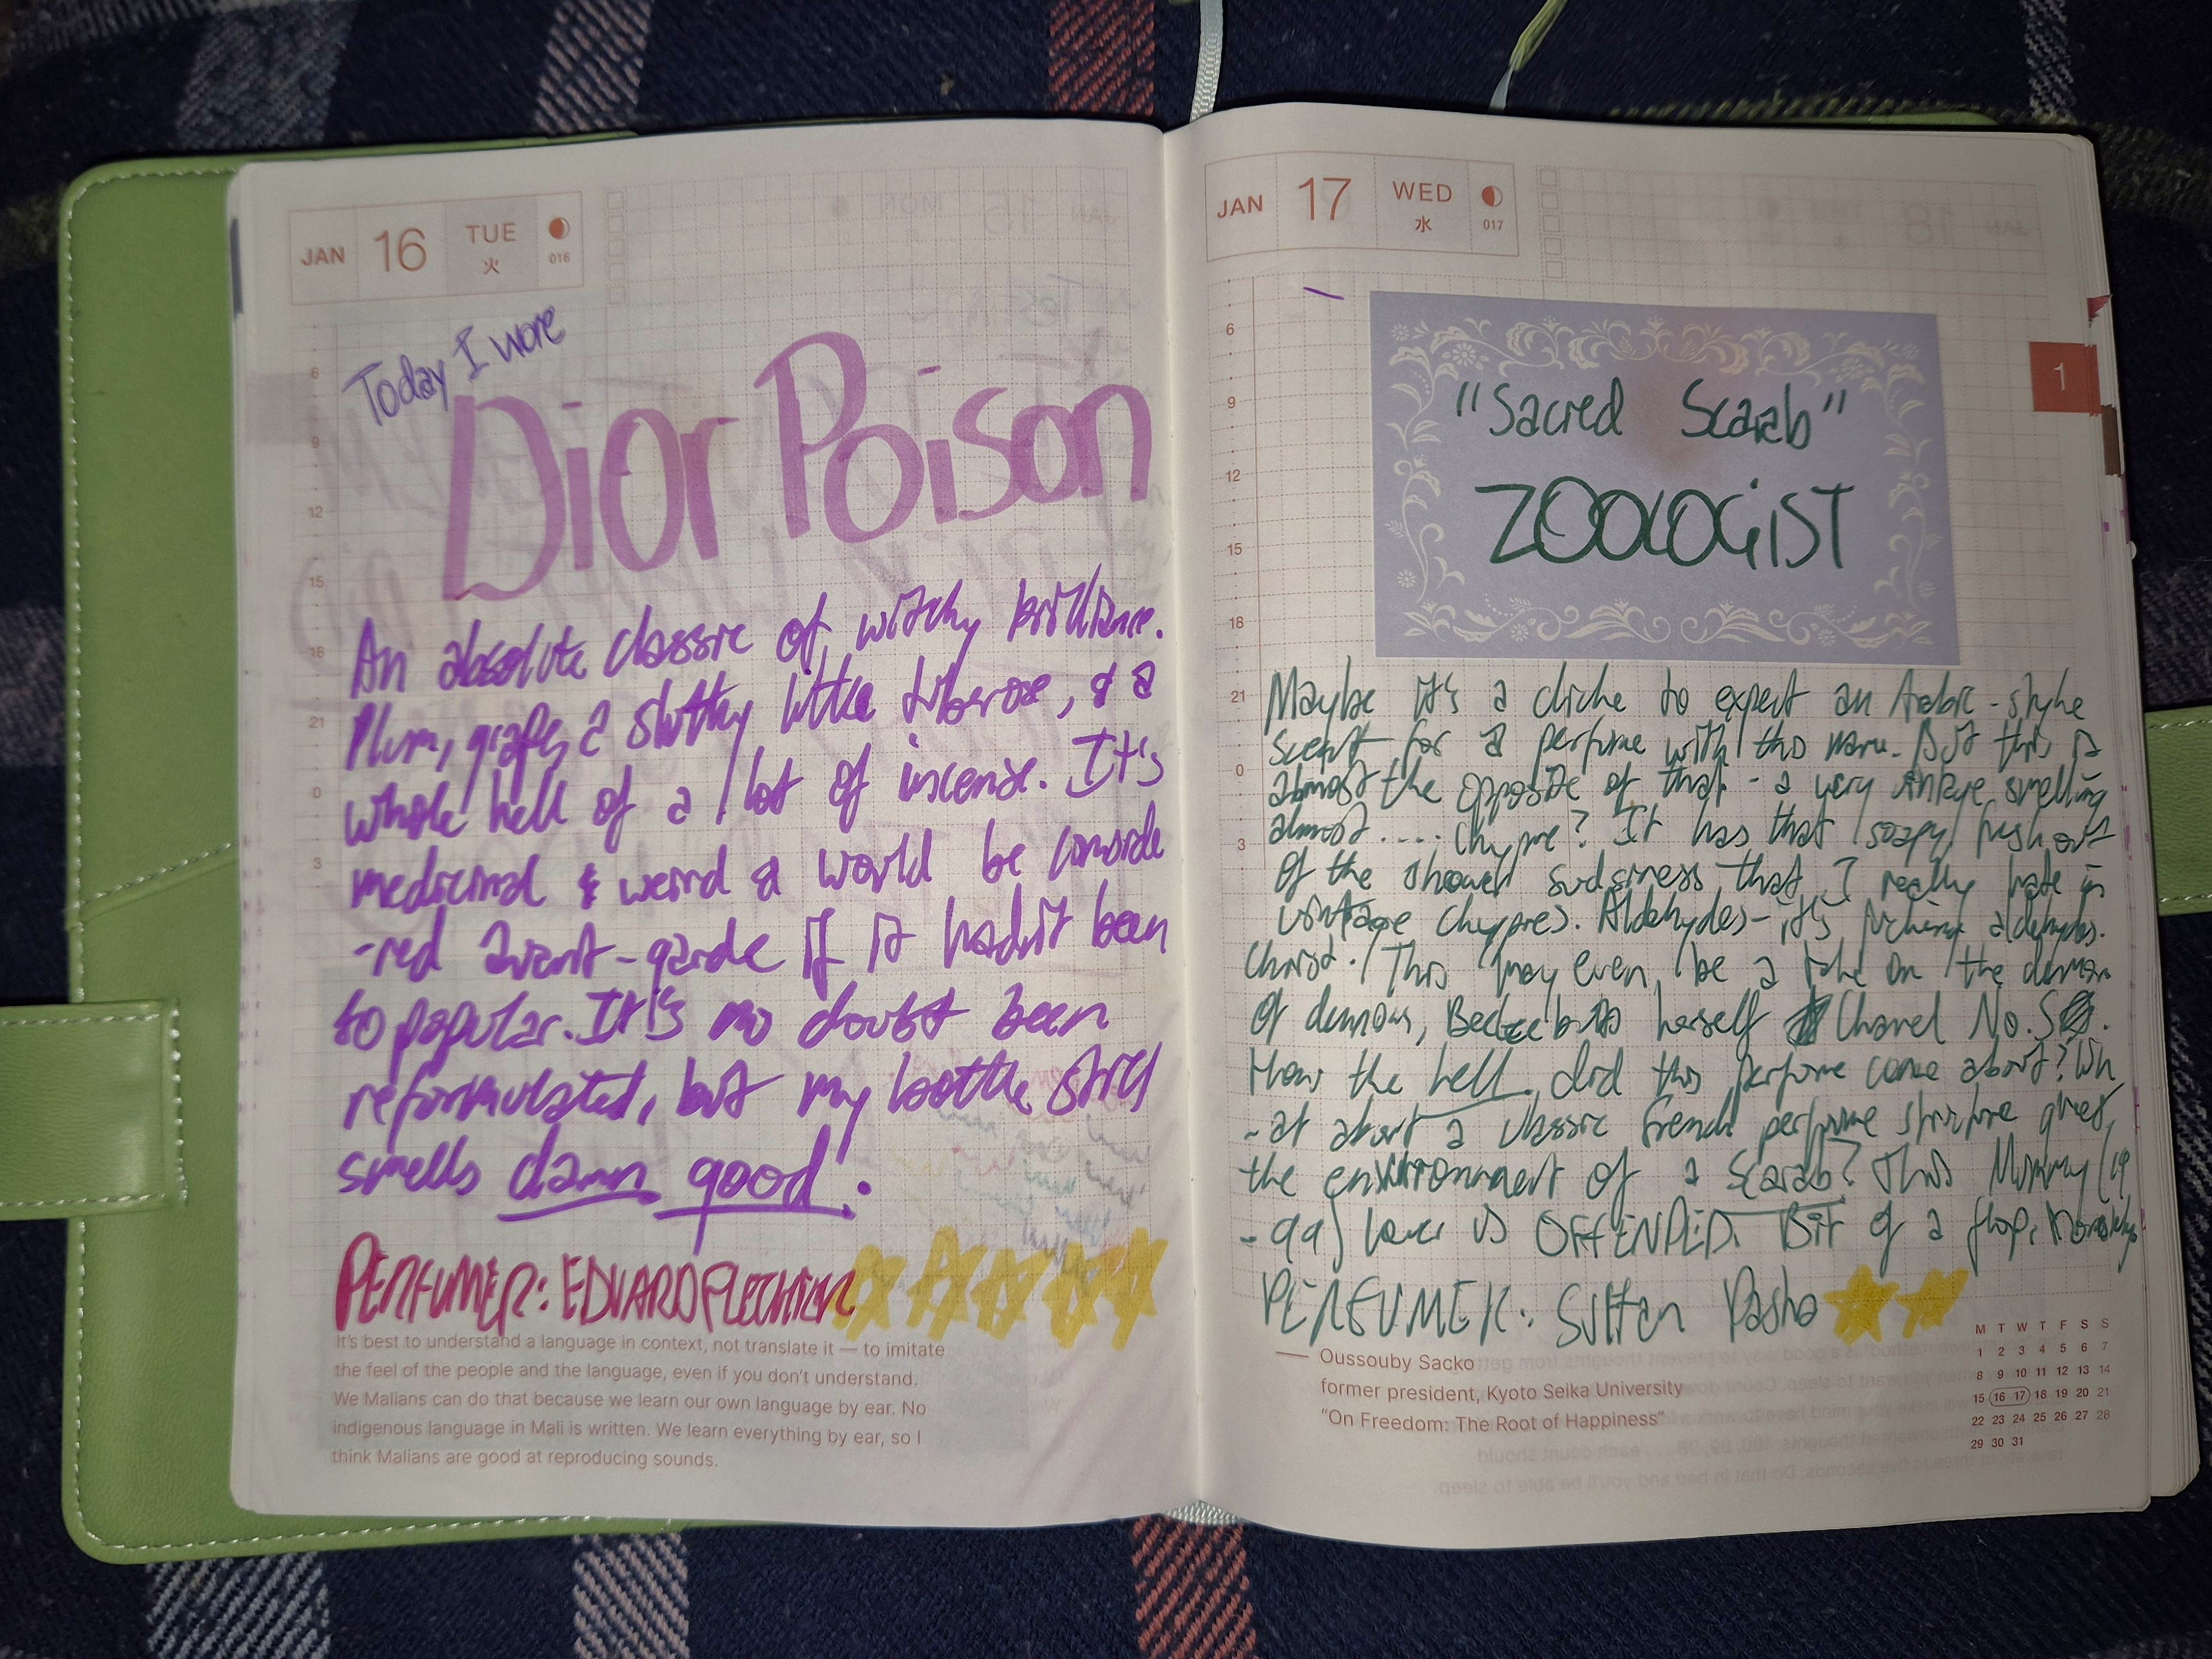 JAN 16 TUE 火 016
Today I wore
Dior Poison
An absolute classic of witchy brilliance.
Plum, grapes, a slutty little tuberose, & a
whole hell of a lot of incense. It's
medicinal & weird & would be conside
-red avant-garde if it hadn't been
so popular. It's no doubt been
reformulated, but my bottle still
smells damn good!
PERFUMER: EDUARD FLECHIER
It's best to understand a language in context, not translate it — to imitate
the feel of the people and the language, even if you don't understand.
We Malians can do that because we learn our own language by ear. No
indigenous language in Mali is written. We learn everything by ear, so I
think Malians are good at reproducing sounds.
6
9
12
15
18
21
0
3
JAN 17 WED 水 017
1
"Sacred Scarab"
ZOOLOGIST
6
9
12
15
18
21
0
3
Maybe it's a cliche to expect an Arabic-style
scent for a perfume with this name. But this is
almost the opposite of that - a very vintage smelling
almost .... chypre? It has that soapy fresh out
of the shower sudsiness that I really hate in
vintage chypres. Aldehydes - it's fucking aldehydes.
Christ. This may even be a take on the demon
of demons, Beelzebub herself Chanel No. 5.
How the hell did this perfume come about? Wh
-at about a classic French perfume structure
the environment of a scarab? This Mummy (19
-99) lover is OFFENDED. Bit of a flop,
PERFUMER: Sultan Pasha
— Oussouby Sacko
former president, Kyoto Seika University
"On Freedom: The Root of Happiness"
M T W T F S S
1 2 3 4 5 6 7
8 9 10 11 12 13 14
15 16 17 18 19 20 21
22 23 24 25 26 27 28
29 30 31